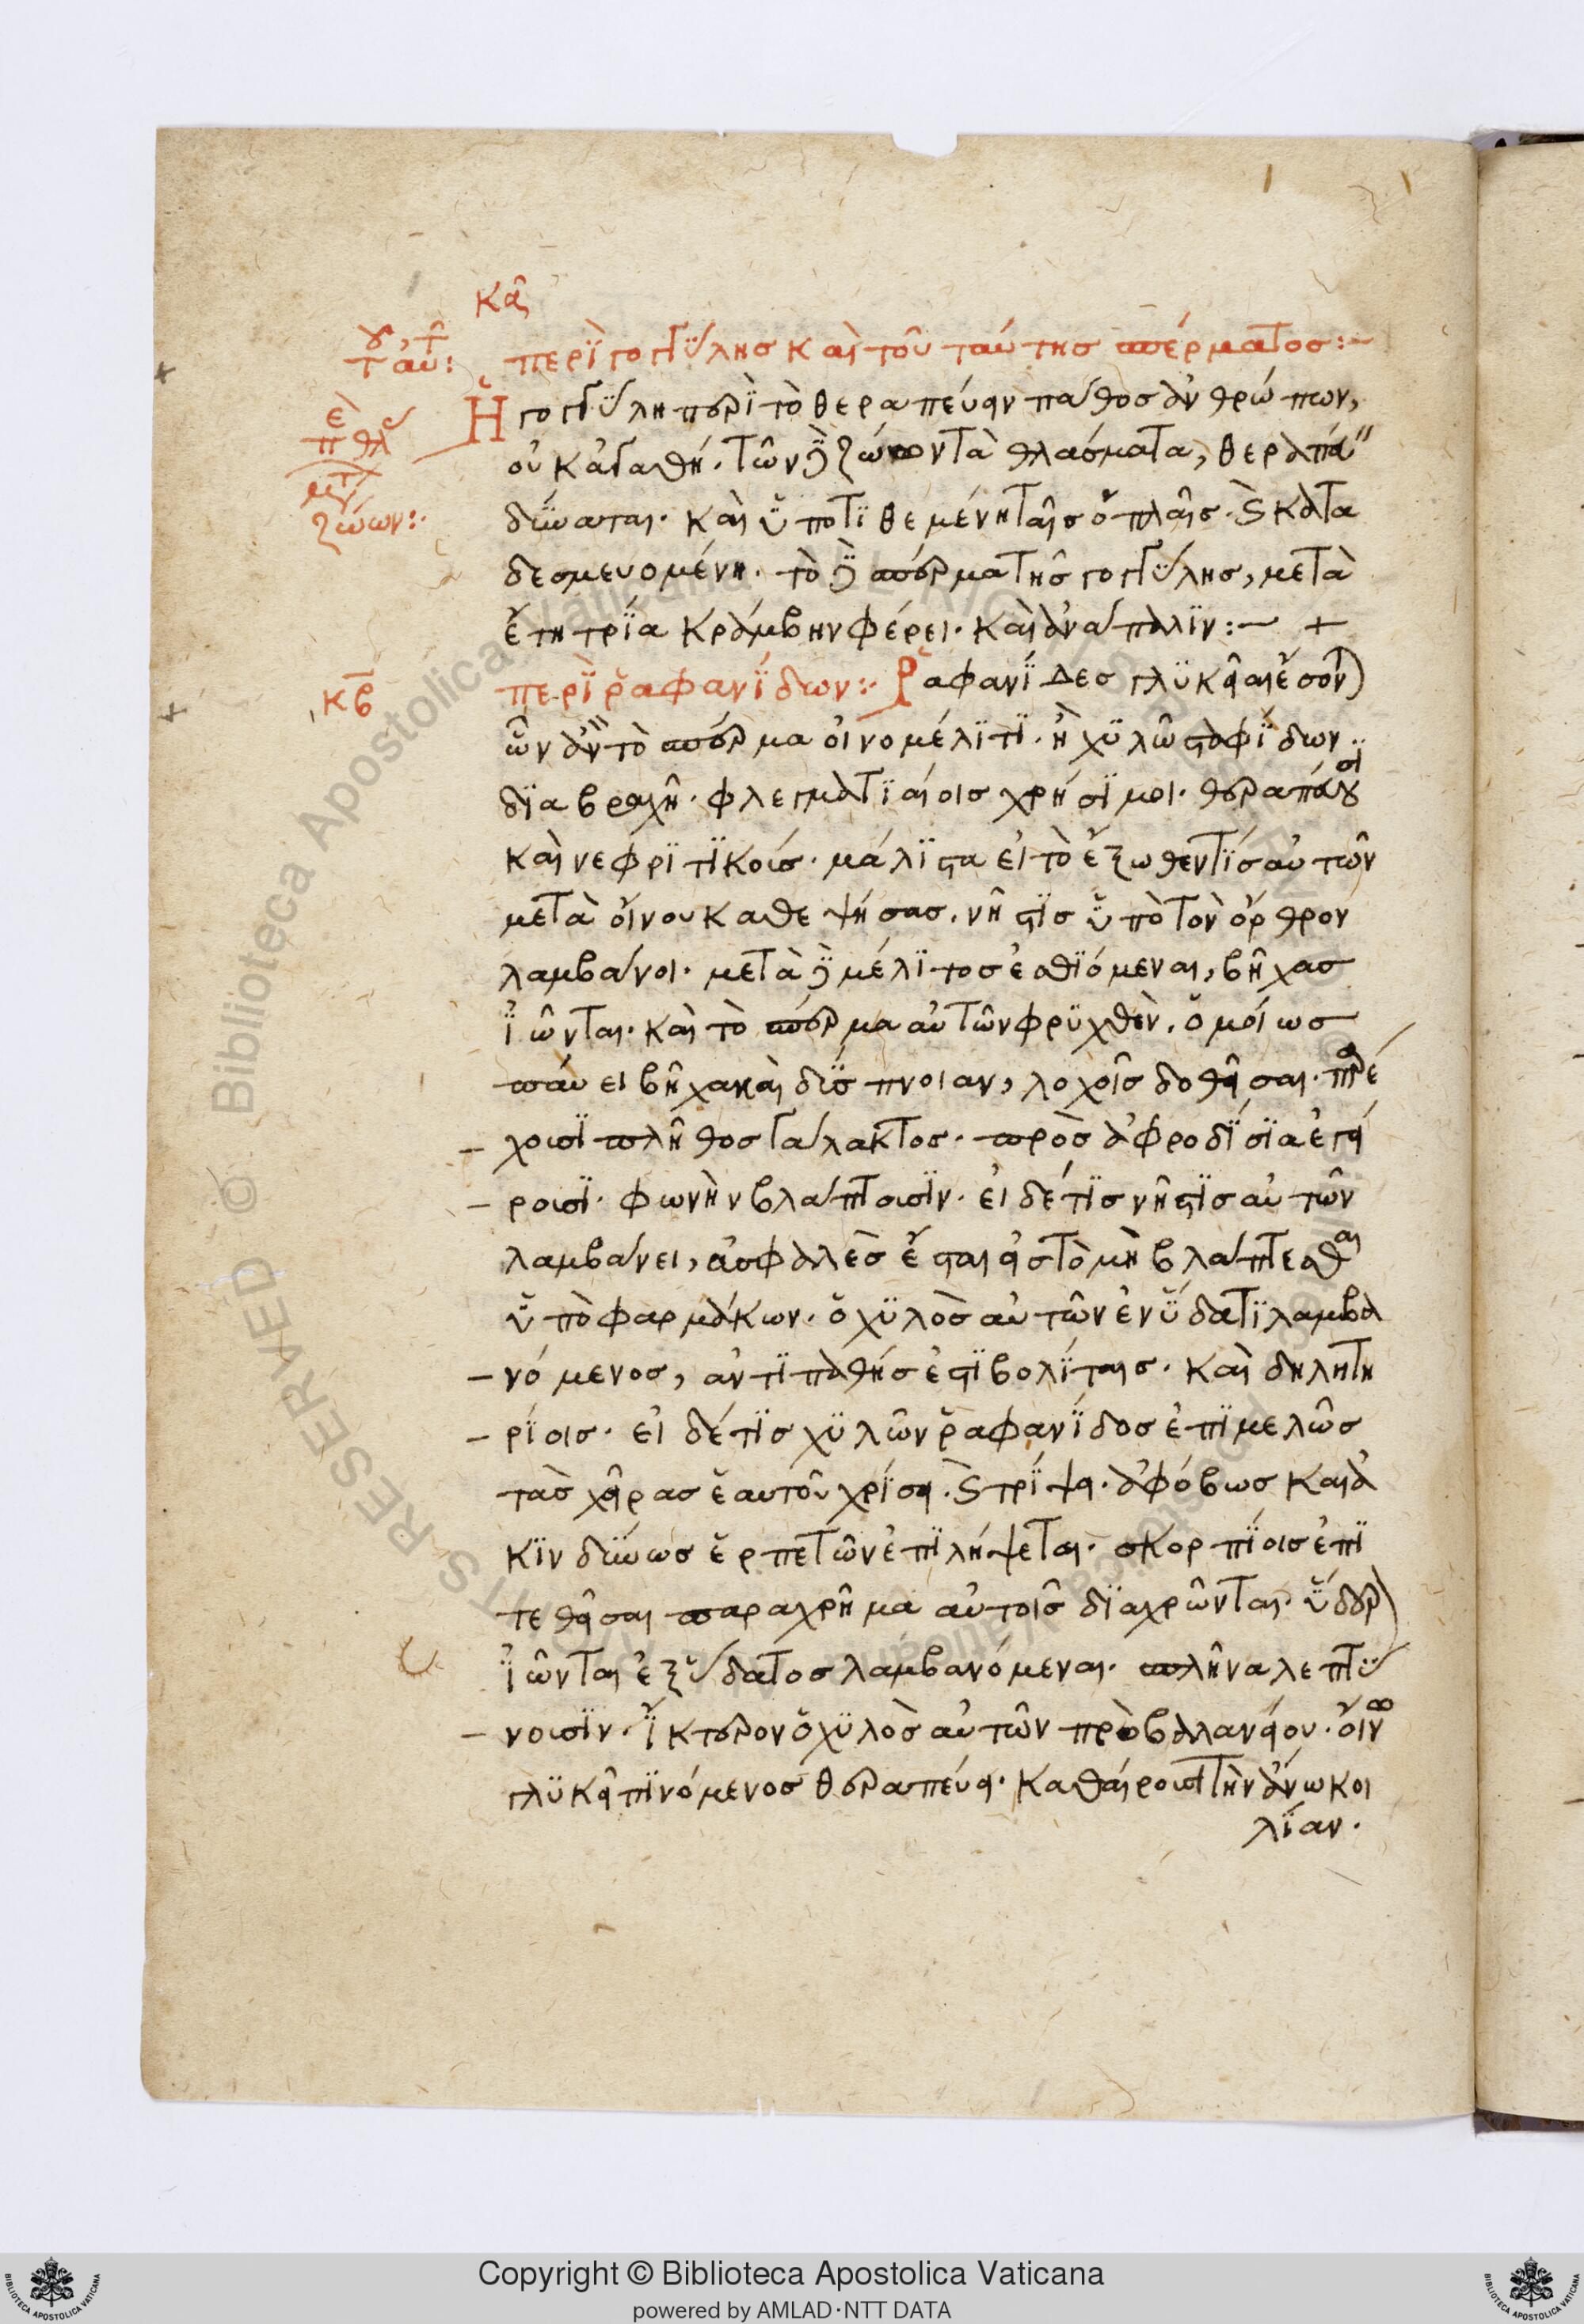 κα
τοῦ αὐτ:
περὶ γογγύλης καὶ τοῦ ταύτης σπέρματος:-
ἐπθλ
μτ
ζώων:·
Ἡ γογγύλη πρὶ τὸ θεραπεύειν πάθος ἀνθρώπων,
οὐκ ἀγαθή. τῶν δὲ ζώων τὰ θλάσματα, θεραπεύ
δύναται. καὶ ὑποτιθεμένη ταῖς ὁπλαῖς. καὶ κατα
δεσμευομένη. τὸ δὲ σπέρμα τῆς γογγύλης, μετὰ
ἔτη τρία κράμβην φέρει. καὶ ἀνάπαλιν:- +
κβ
περὶ ῥαφανίδων:· Ῥαφανίδες γλυκεῖαι ἔσον)
ὧν ἂν τὸ σπέρμα οἰνομέλιτι. ἢ χυλῷ σταφίδων
διαβραχῇ. φλεγματιαίοις χρήσιμοι. θεραπεύουσι
καὶ νεφριτικοῖς. μάλιστα εἰ τὸ ἔξωθεν τὶς αὐτῶν
μετὰ οἴνου καθεψήσας. νῆστις ὑπὸ τὸν ὄρθρον
λαμβάνοι. μετὰ δὲ μέλιτος ἐσθιόμεναι, βῆχας
ἰῶνται. καὶ τὸ σπέρμα αὐτῶν φρυχθὲν. ὁμοίως
παύει βῆχα καὶ δύσπνοιαν, λοχοῖς δοθεῖσαι. παρέ
- χουσι πλῆθος γάλακτος. πρὸς ἀφροδίσια ἐγεί
- ρουσι. φωνὴν βλάπτουσιν. εἰ δέ τις νῆστις αὐτῶν
λαμβάνει, ἀσφαλὲς ἔσται εἰς τὸ μὴ βλάπτεσθαι
ὑπὸ φαρμάκων. ὁ χυλὸς αὐτῶν ἐν ὕδατι λαμβα
- νόμενος, ἀντιπαθής ἐστι βολίταις. καὶ δηλητη
- ρίοις. εἰ δέ τις χυλῶν ῥαφανίδος ἐπιμελῶς
τὰς χεῖρας ἑαυτοῦ χρίσει. καὶ τρίψει. ἀφόβως καὶ ἀ
κινδύνως ἑρπετῶν ἐπιλήψεται. σκορπίοις ἐπι
τεθεῖσαι παραχρῆμα αὐτοῖς διαχρῶνται. ὕδερ)
ἰῶνται ἐξ ὕδατος λαμβανόμεναι. σπλῆνα λεπτύ
- νουσιν. ἴκτερον ὁ χυλὸς αὐτῶν πρὸ βαλανείου. οἴνω
γλυκεῖ πινόμενος θεραπεύει. καθαίρουσι τὴν ἄνω κοι
λίαν.